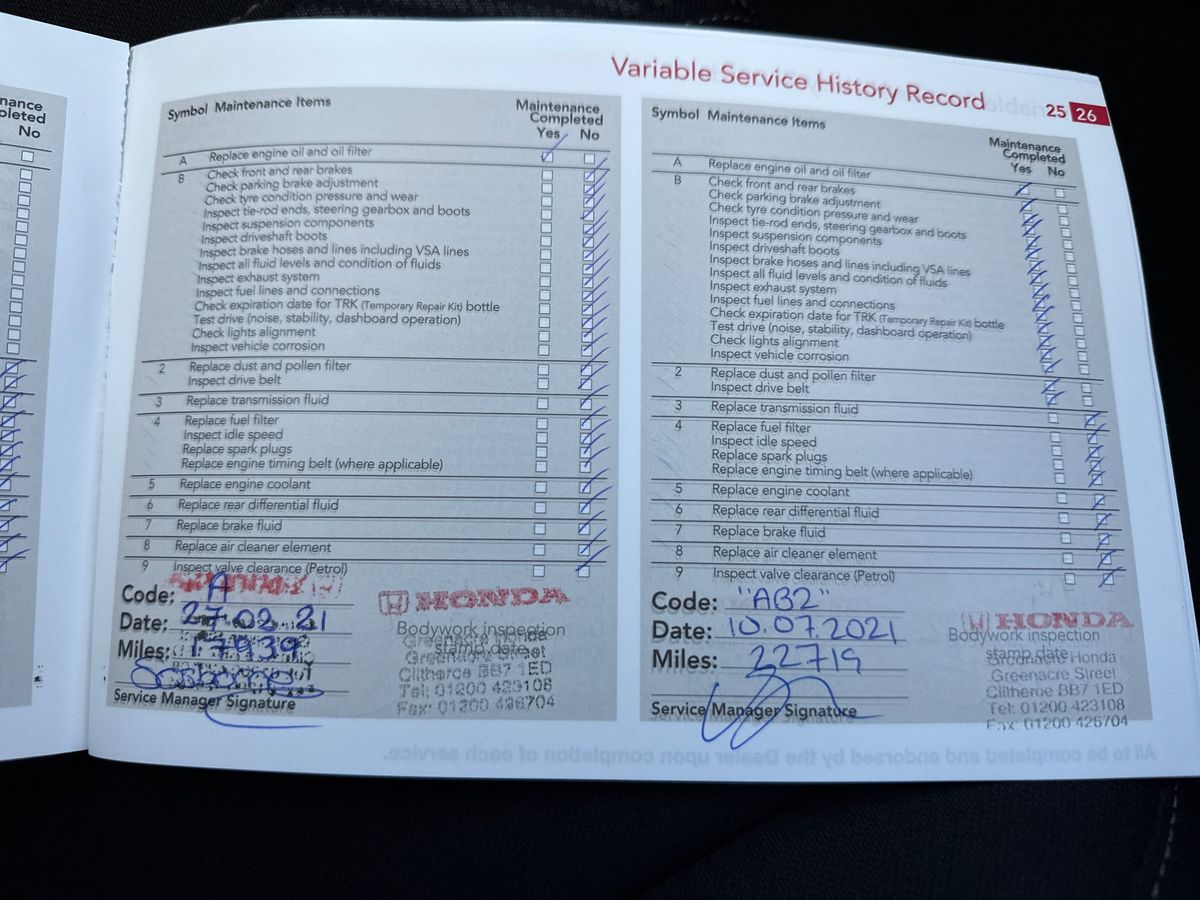 nance
pleted
No
Variable Service History Record
25 26
Symbol Maintenance Items
Maintenance
Completed
Yes No
A Replace engine oil and oil filter
B Check front and rear brakes
Check parking brake adjustment
Check tyre condition pressure and wear
Inspect tie-rod ends, steering gearbox and boots
Inspect suspension components
Inspect driveshaft boots
Inspect brake hoses and lines including VSA lines
Inspect all fluid levels and condition of fluids
Inspect exhaust system
Inspect fuel lines and connections
Check expiration date for TRK (Temporary Repair Kit) bottle
Test drive (noise, stability, dashboard operation)
Check lights alignment
Inspect vehicle corrosion
2 Replace dust and pollen filter
Inspect drive belt
3 Replace transmission fluid
4 Replace fuel filter
Inspect idle speed
Replace spark plugs
Replace engine timing belt (where applicable)
5 Replace engine coolant
6 Replace rear differential fluid
7 Replace brake fluid
8 Replace air cleaner element
9 Inspect valve clearance (Petrol)
Code: A
Date: 27.02.21
Miles: 17939
Service Manager Signature
HONDA
Bodywork inspection
stamp date
Greenacre Honda
Greenacre Street
Clitheroe BB7 1ED
Tel: 01200 423108
Fax: 01200 426704
Symbol Maintenance Items
Maintenance
Completed
Yes No
A Replace engine oil and oil filter
B Check front and rear brakes
Check parking brake adjustment
Check tyre condition pressure and wear
Inspect tie-rod ends, steering gearbox and boots
Inspect suspension components
Inspect driveshaft boots
Inspect brake hoses and lines including VSA lines
Inspect all fluid levels and condition of fluids
Inspect exhaust system
Inspect fuel lines and connections
Check expiration date for TRK (Temporary Repair Kit) bottle
Test drive (noise, stability, dashboard operation)
Check lights alignment
Inspect vehicle corrosion
2 Replace dust and pollen filter
Inspect drive belt
3 Replace transmission fluid
4 Replace fuel filter
Inspect idle speed
Replace spark plugs
Replace engine timing belt (where applicable)
5 Replace engine coolant
6 Replace rear differential fluid
7 Replace brake fluid
8 Replace air cleaner element
9 Inspect valve clearance (Petrol)
Code: "AB2"
Date: 10.07.2021
Miles: 22719
Service Manager Signature
HONDA
Bodywork inspection
stamp date
Greenacre Honda
Greenacre Street
Clitheroe BB7 1ED
Tel: 01200 423108
Fax: 01200 426704
All to be completed and endorsed by the Dealer upon completion of each service.